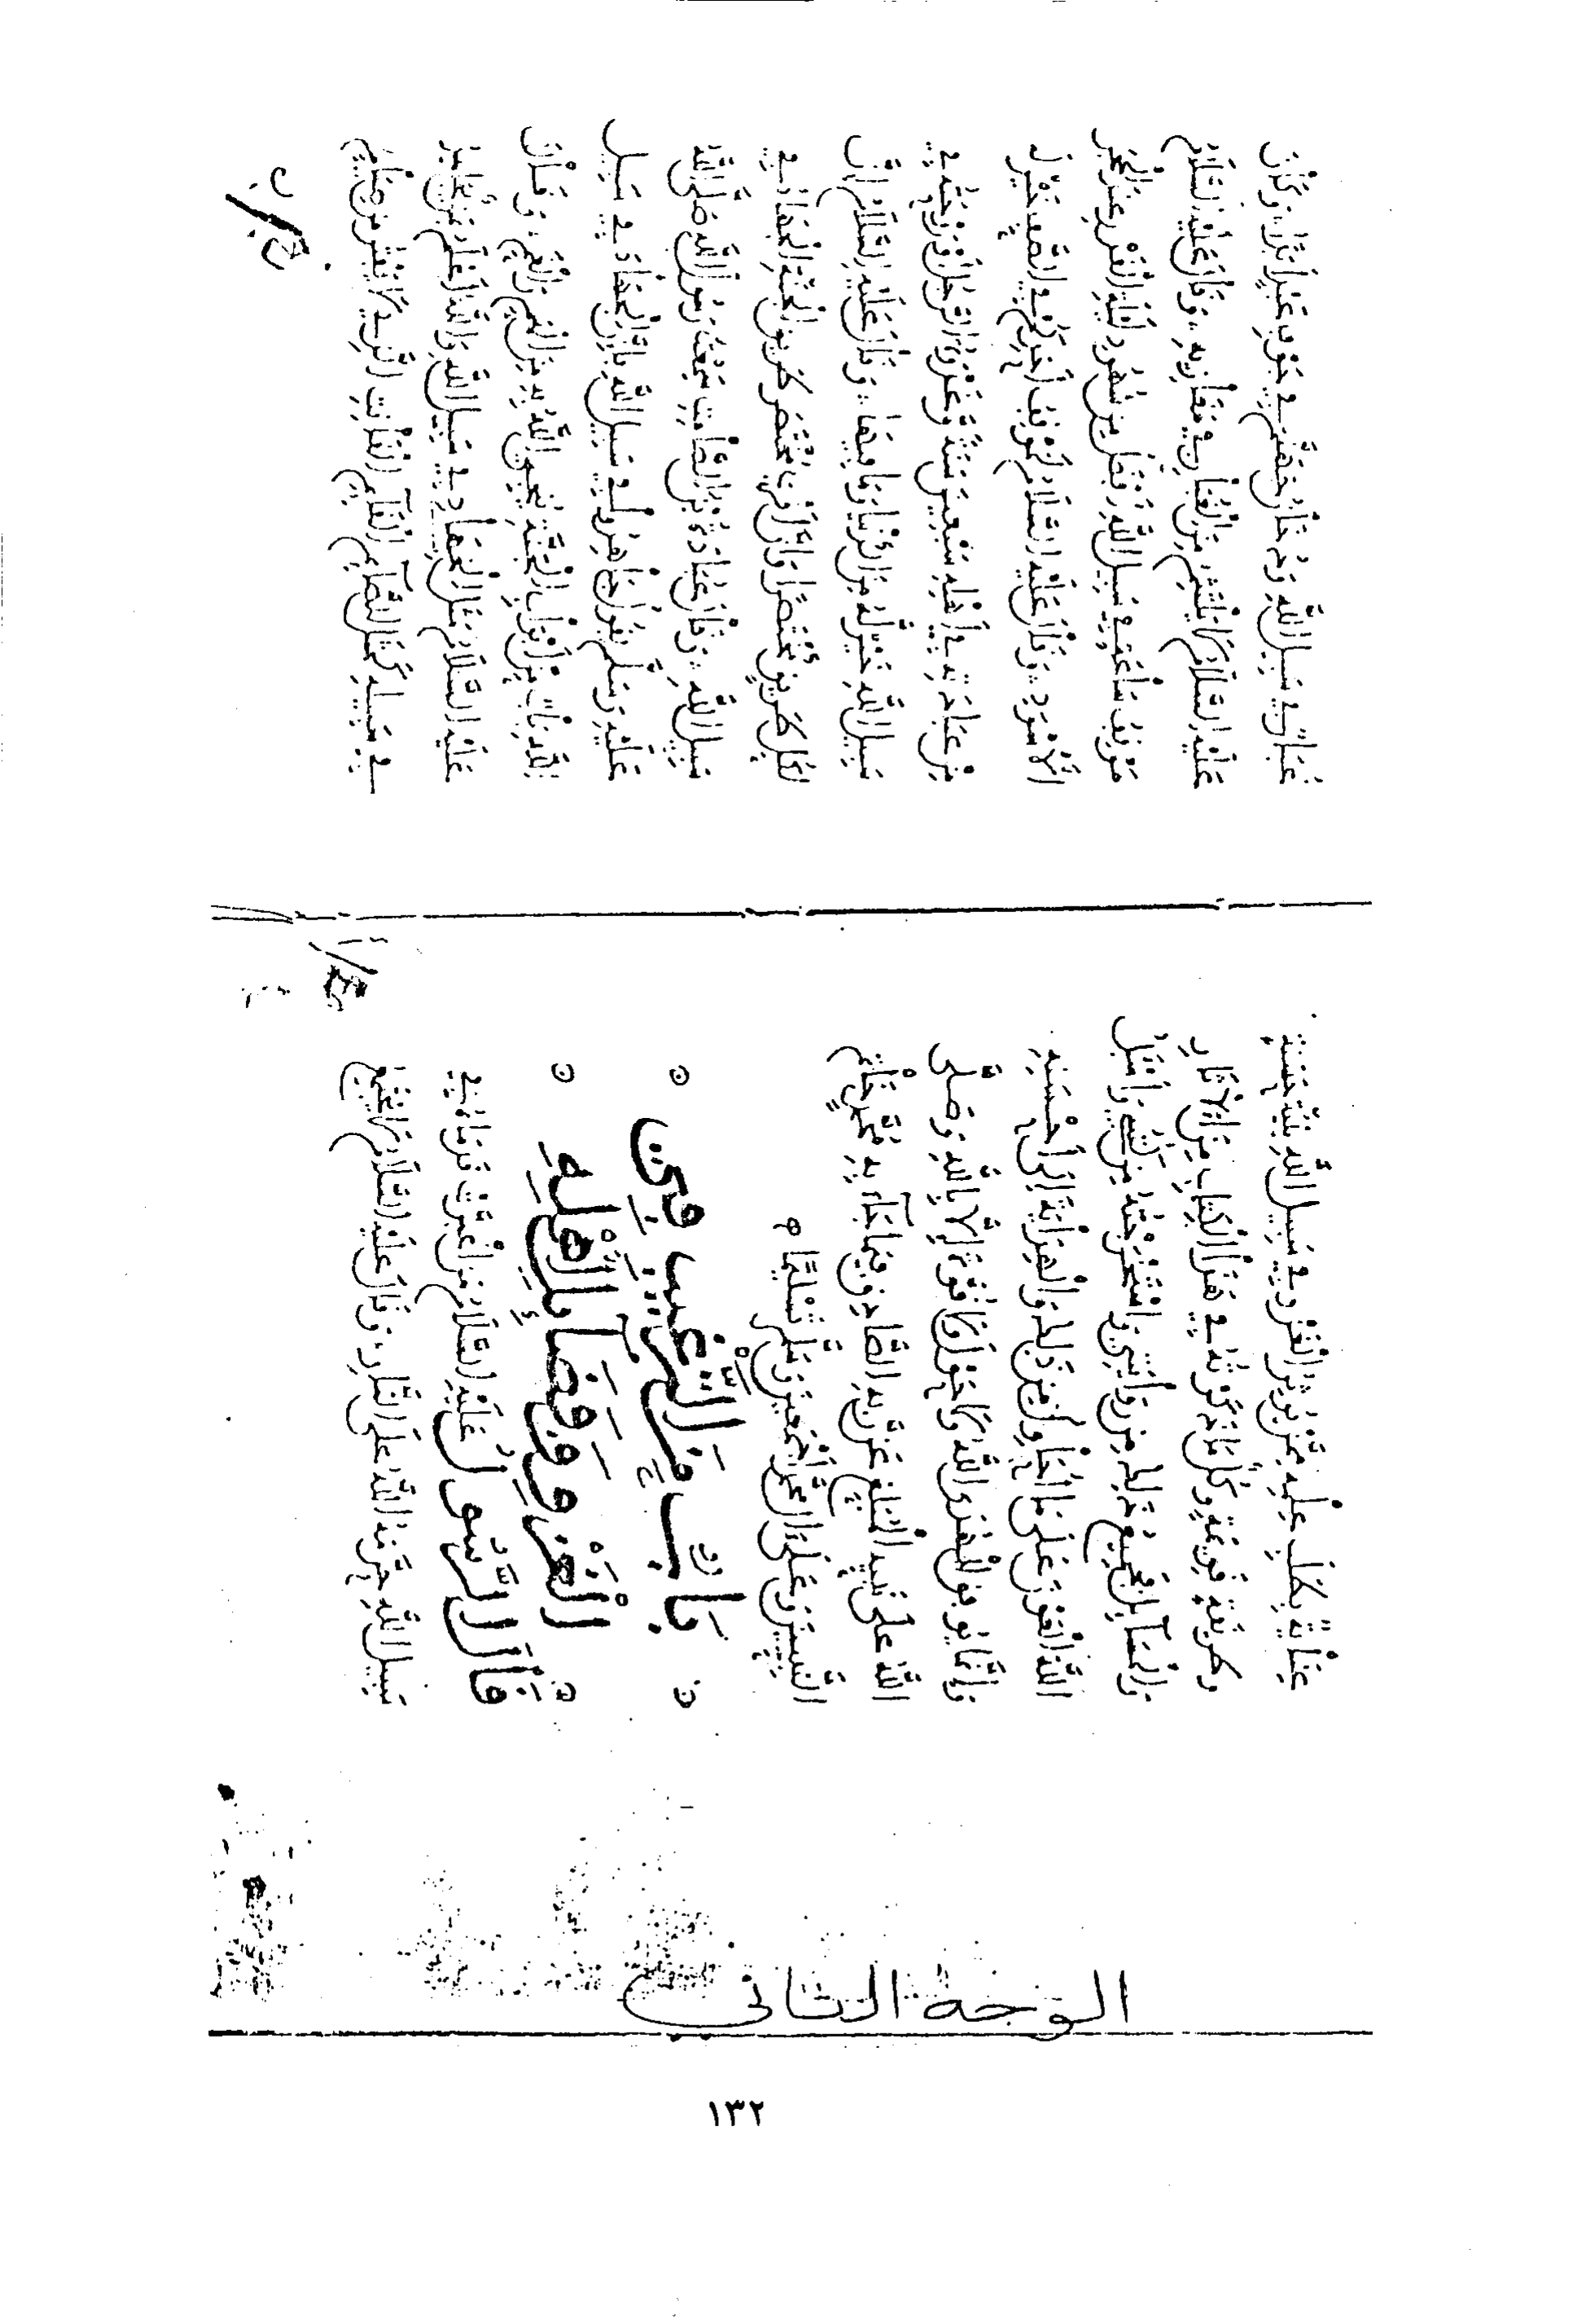 الوجه الثاني
عناية بكل علمه من يريد الغزو في سبيل الله بنية حسنة
وطريقة قويمة وكل ما نذكره في هذا الكتاب من الاثار
والمسآيل فجميع ذلك من روايتي واستخرجته من كتبي وأسئل
الله العون على ما أحاول من ذلك والهداية الى أحسنه
الله ولا حول ولا قوة الا بالله وصلى
الله على نبيه المبلغ عن ربه الصادق فيما جآء به محمد خاتم
النبيين وعلى اله أجمعين وسلم تسليما
باب من الترغيب في
الغزو وفضآيل أهله
قال الرسول عليه السلام من اغبرت قدماه في
سبيل الله حرمه الله على النار وقال عليه السلام لا يجتمع
غبار في سبيل الله ودخان جهنم في جوف عبد أبدا وكان
عليه السلام لا يلتثم من الغبار في مغازيه وقال عليه السلام
موقف ساعة في سبيل الله أفضل من شهود ليلة القدر عند الحجر
الاسود وقال عليه السلام لموقف أحدكم في الصف خير له
من عبادته في أهله سبعين سنة وغزوة الرجل أو روحته في
سبيل الله خير له من الدنيا وما فيها وقال عليه السلام ان
لكل طريق مختصرا وان مختصر طريق الجنة الجهاد في
سبيل الله وقال عبادة بن الصامت سمعت رسول الله صلى الله
عليه وسلم يقول جاهدوا في سبيل الله فان الجهاد في سبيل
الله باب من أبواب الجنة ينجي الله به من الهم والغم وقال
عليه السلام مثل المجاهد في سبيل الله والله أعلم بمن يجاهد
في سبيله كمثل الصآيم القآيم القانت الذي لا يفتر من صيام
١٣٢